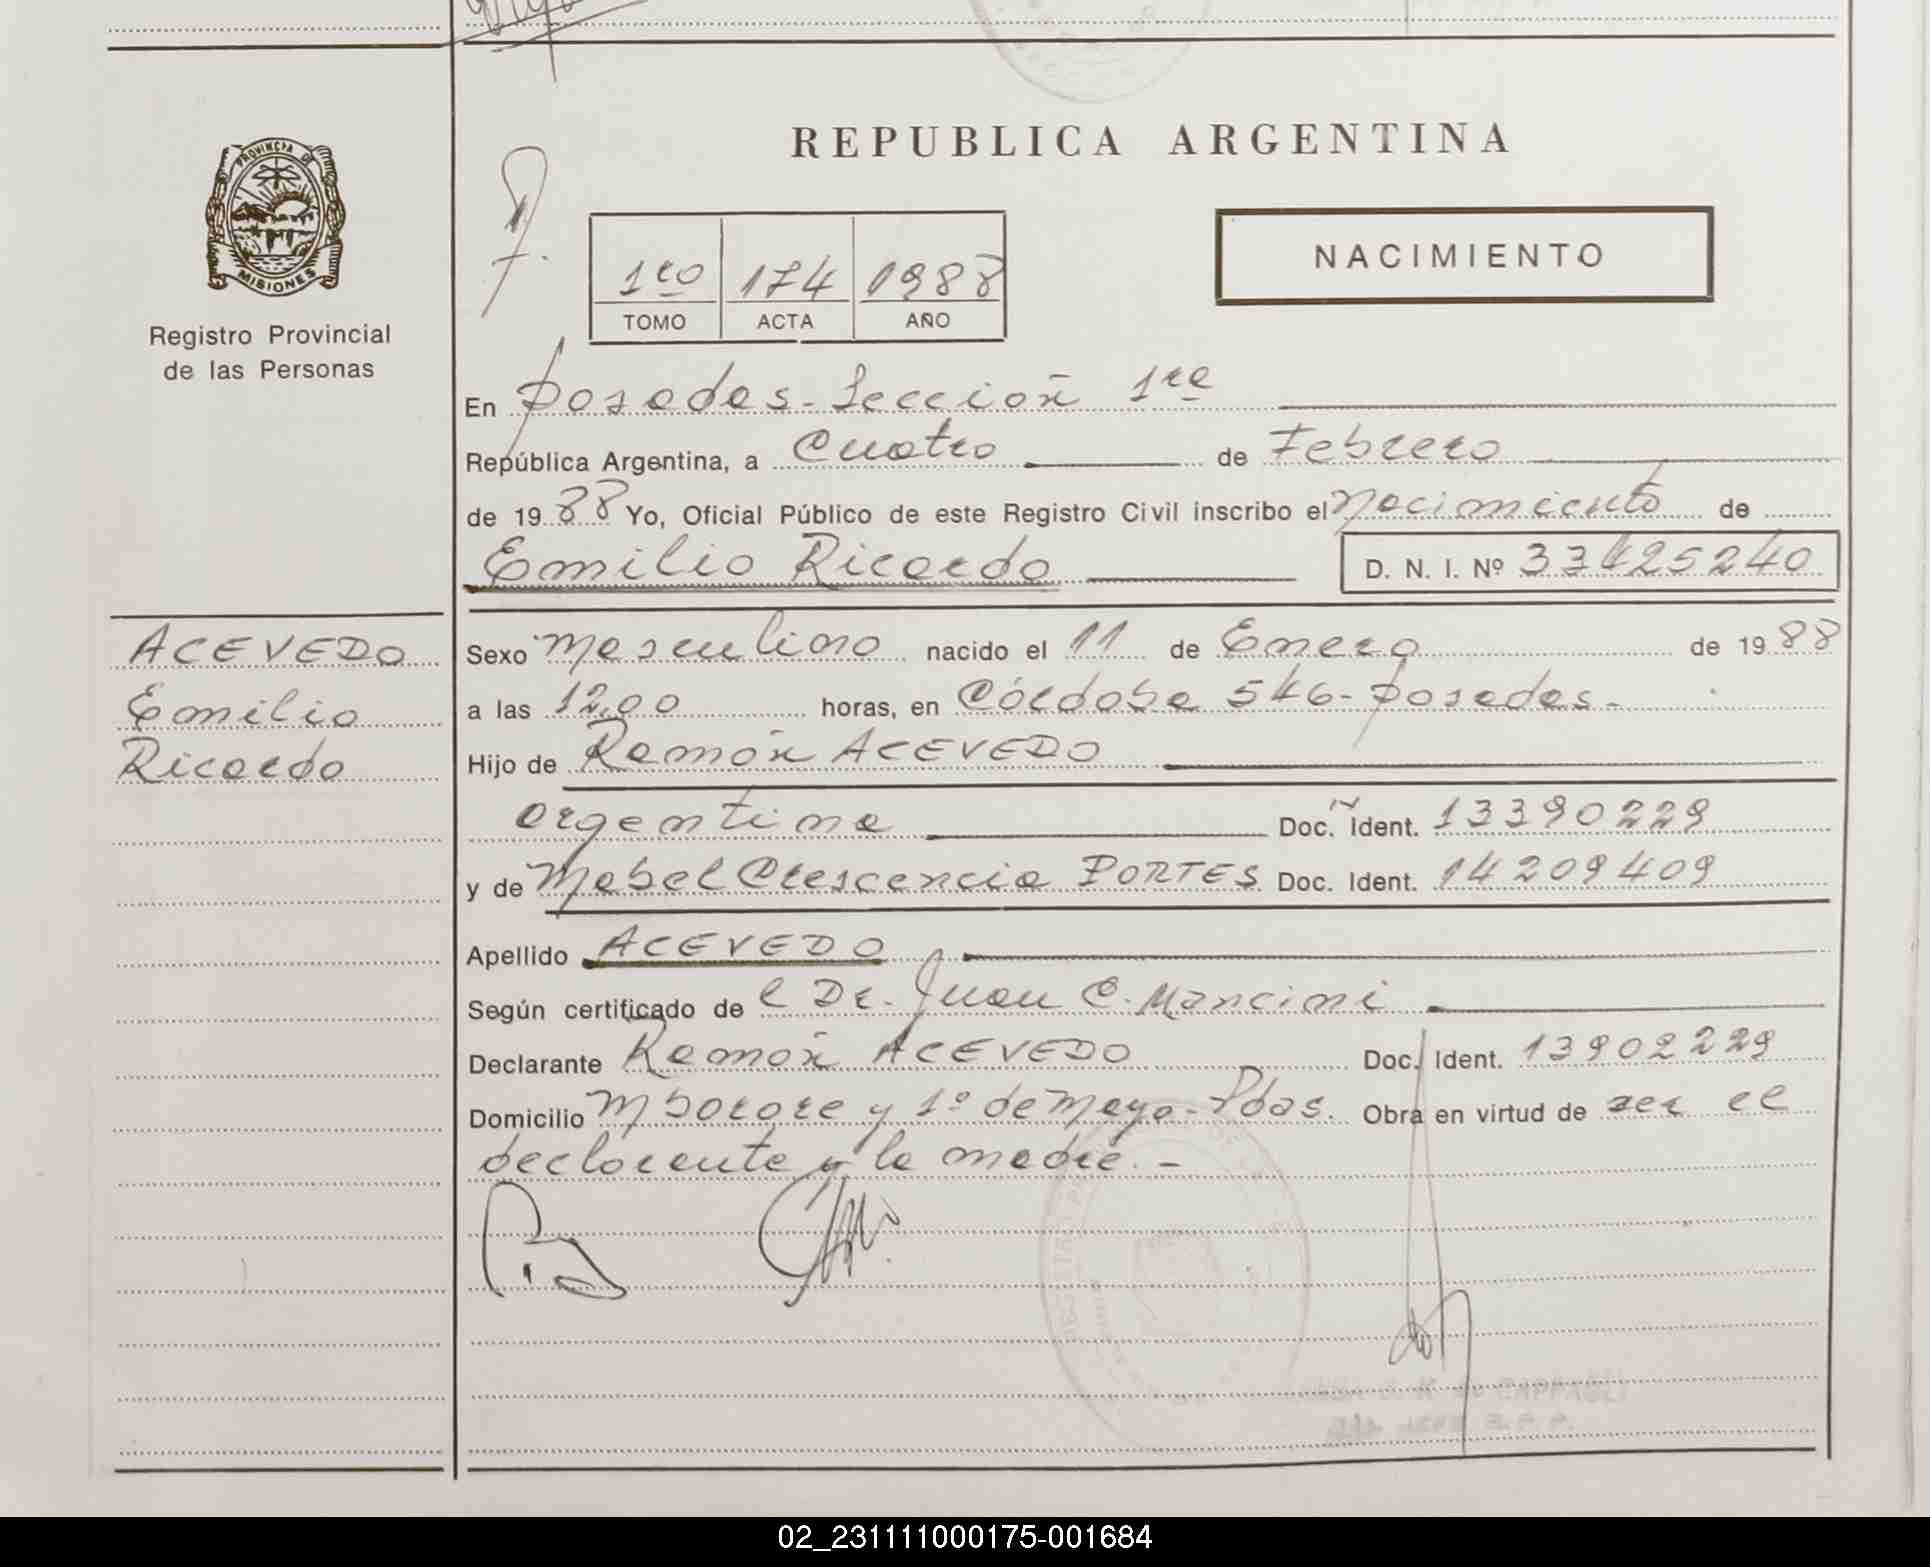 REPUBLICA ARGENTINA
PROVINCIA DE
MISIONES
Registro Provincial
de las Personas
1ro 174 1988
TOMO ACTA AÑO
NACIMIENTO
En Posadas - Sección 1ra
República Argentina, a Cuatro de Febrero
de 1988 Yo, Oficial Público de este Registro Civil inscribo el Nacimiento de
Emilio Ricardo D. N. I. Nº 33425240
ACEVEDO
Emilio
Ricardo
Sexo Masculino nacido el 11 de Enero de 1988
a las 12,00 horas, en Córdoba 546 - Posadas.
Hijo de Ramón ACEVEDO
argentina Doc. Ident. 13390229
y de Mabel Crescencia PORTES Doc. Ident. 14209409
Apellido ACEVEDO
Según certificado de l Dr. Juan C. Mancini
Declarante Ramón ACEVEDO Doc. Ident. 13902229
Domicilio Mborore y 1º de Mayo - Pdas. Obra en virtud de ser el
declarante y la madre. -
02_231111000175-001684